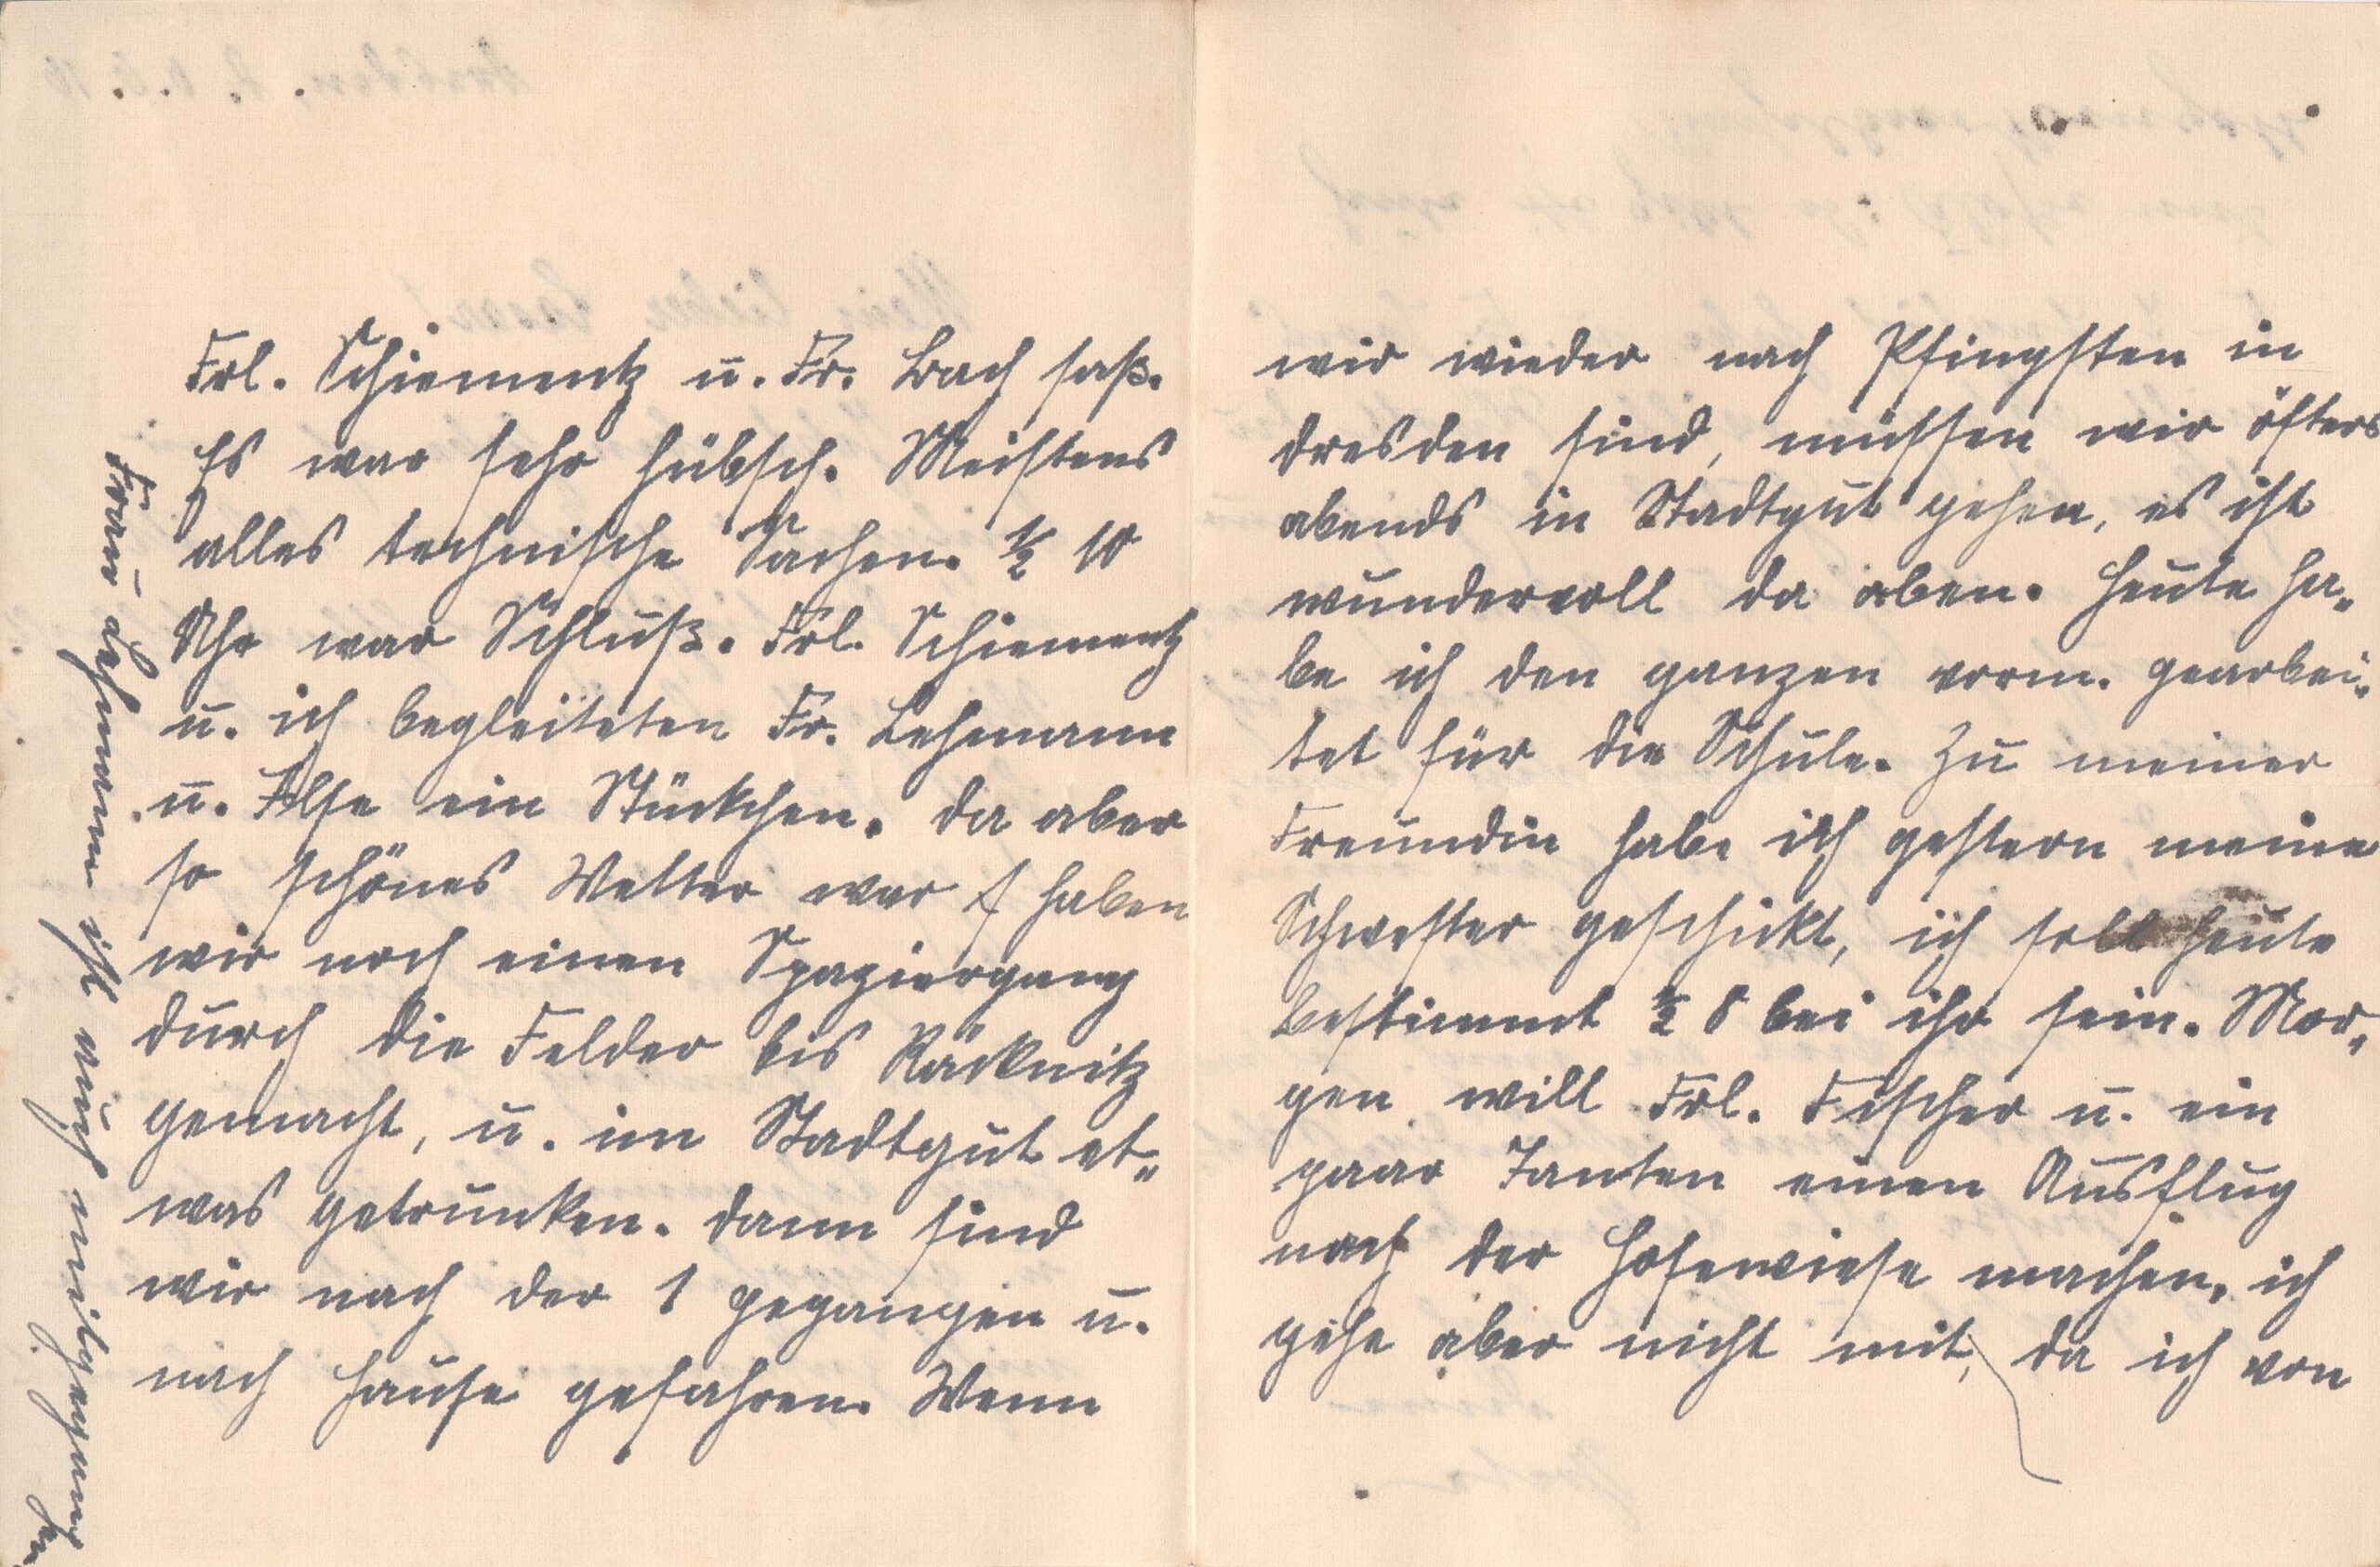 Frl. Schiementz u. Fr. Bach saß.
Es war sehr hübsch. Meistens
alles technische Sachen. ½ 10
Uhr war Schluß. Frl. Schiementz
u. ich begleiteten Fr. Lehmann
u. Ilse ein Stückchen. Da aber
so schönes Wetter war haben
wir noch einen Spaziergang
durch die Felder bis Räcknitz
gemacht, u. im Stadtgut et-
was getrunken. Dann sind
wir nach der 1 gegangen u.
nach Hause gefahren. Wenn
Frau Lehmann ist auch mitgegangen
wir wieder nach Pfingsten in
Dresden sind, müssen wir öfters
abends in Stadtgut gehen, es ist
wundervoll da oben. Heute ha-
be ich den ganzen vorm. gearbei-
tet für die Schule. Zu meiner
Freundin habe ich gestern meine
Schwester geschickt, ich soll heute
bestimmt ½ 8 bei ihr sein. Mor-
gen will Frl. Fischer u. ein
paar Tanten einen Ausflug
nach der Hofewiese machen, ich
gehe aber nicht mit, da ich von